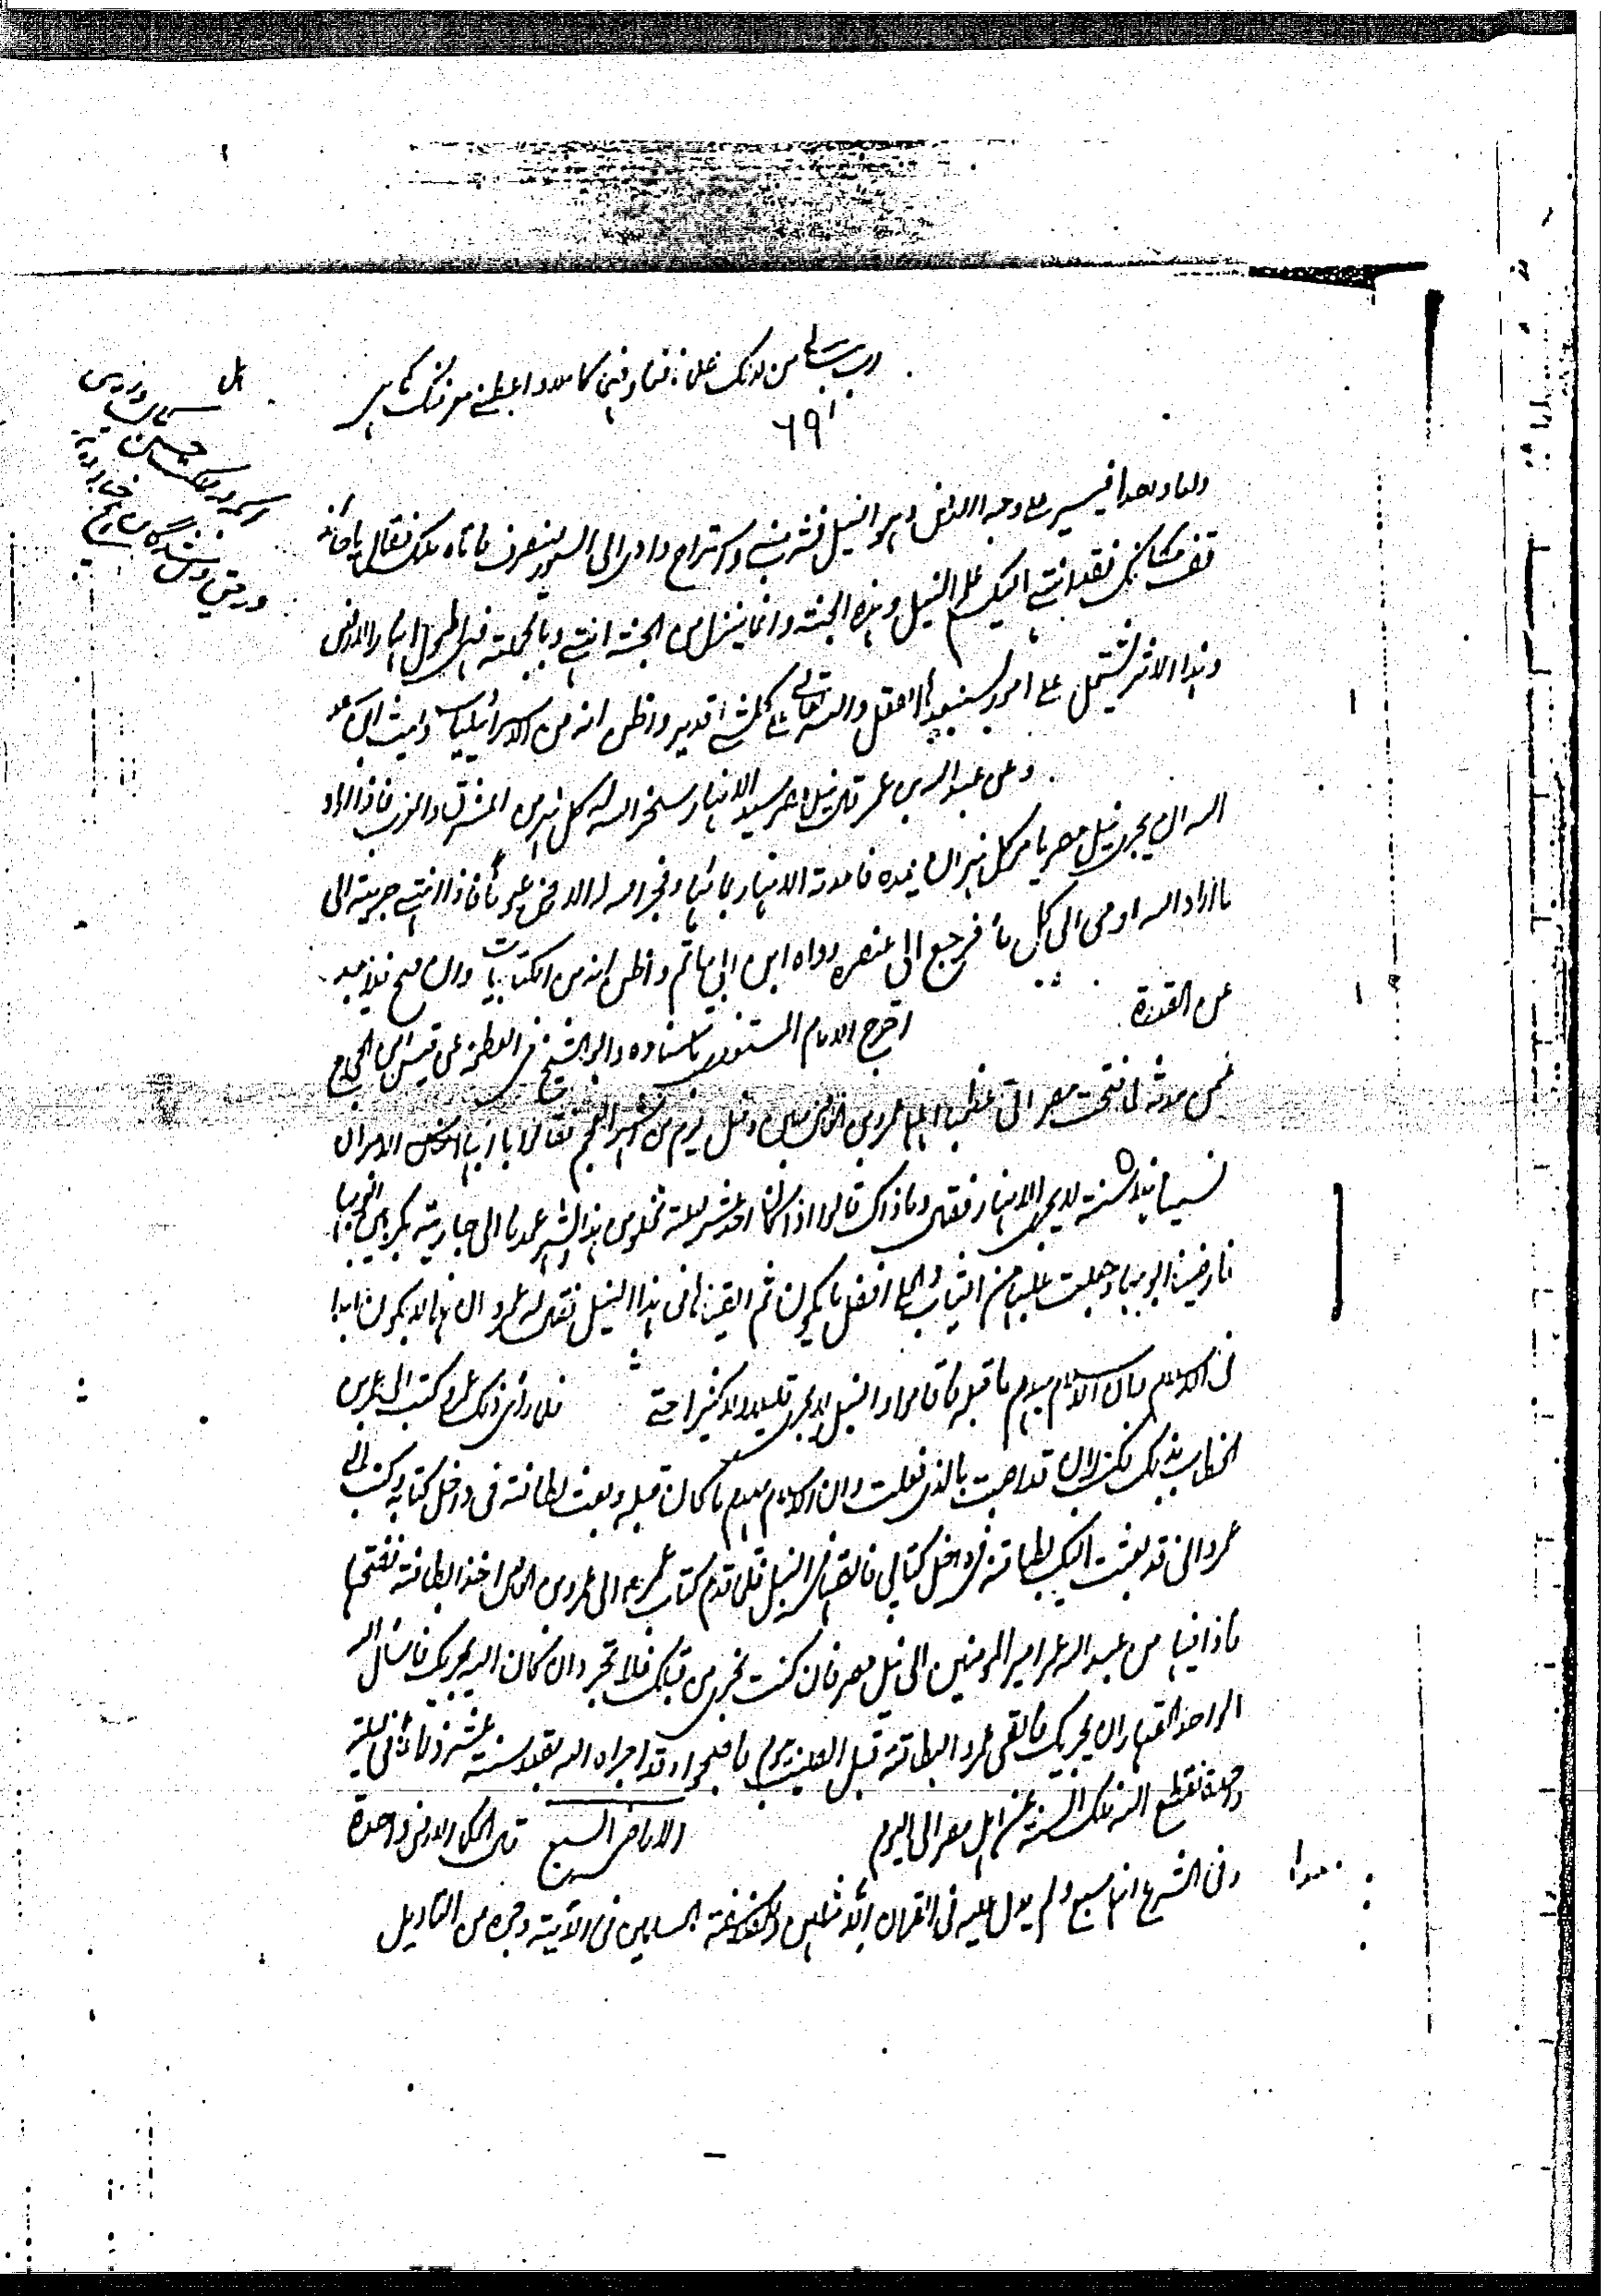 رب هب لي من لدنك علما نافعا وفهما كاملا واعطني معرفتك
٦٩
فيسير على وجه الارض وهو النيل فشرب منه واستراح واوى الى السور لينصرف فاتاه ملك فقال يا حائذ
قف مكانك فقد انتهى اليك علم النيل وهذه الجنة وانما ينزل من الجنة انتهى وبالجملة فهو اطول انهار الارض
وهذا الاثر يشتمل على امور يستبعدها العقل والله تعالى على كل شيء قدير واظن انه من الاسرائيليات
وعن عبد الله بن عمر قال نيل مصر سيد الانهار سخر الله له كل نهر من المشرق والمغرب فاذا اراد
الله ان يجري نيل مصر يامر كل نهر ان يمده فامدته الانهار بمائها وفجر الله له الارض عيونا فاذا انتهى جريته الى
ما اراد الله اوحى الى كل ماء فرجع الى عنصره رواه ابن ابي حاتم واظن انه من الكتابيات وان صح فلا بعد
عن القدرة
اخرج الامام المستغفري باسناده وابو الشيخ في العظمة عن قيس بن الحجاج
عمن حدثه لما فتحت مصر اتى اهلها عمرو بن العاص حين دخل يوم من اشهر العجم فقالوا يا ايها الامير ان
لنيلنا هذا سنة لا يجري الا بها فقال وما ذاك قالوا اذا كان احد عشر ليلة تخلو من هذا الشهر عمدنا الى جارية بكر بين ابويها
فارضينا ابويها وجعلنا عليها من الثياب والحلي افضل ما يكون ثم القيناها في هذا النيل فقال له عمرو ان هذا لا يكون ابدا
في الاسلام وان الاسلام يهدم ما قبله فاقاموا والنيل لا يجري قليلا ولا كثيرا حتى
فلما راى ذلك عمرو كتب الى عمر بن
الخطاب بذلك فكتب ان قد اصبت بالذي فعلت وان الاسلام يهدم ما كان قبله وبعث بطاقة في داخل كتابه وكتب الى
عمرو اني قد بعثت اليك بطاقة في داخل كتابي فالقها في النيل فلما قدم كتاب عمر الى عمرو بن العاص اخذ البطاقة ففتحها
فاذا فيها من عبد الله عمر امير المؤمنين الى نيل مصر فان كنت تجري من قبلك فلا تجر وان كان الله يجريك فاسال الله
الواحد القهار ان يجريك فالقى عمرو البطاقة قبل الصليب بيوم فاصبحوا وقد اجراه الله بقدر ستة عشر ذراعا في ليلة
واحدة فقطع الله تلك السنة عن اهل مصر الى اليوم
الاراضي السبع قال الحكماء الارض واحدة
وفي الشرع انها سبع ولم يدل عليه في القران الا مثلهن ولفلاسفة المسلمين في الاية وجوه من التاويل